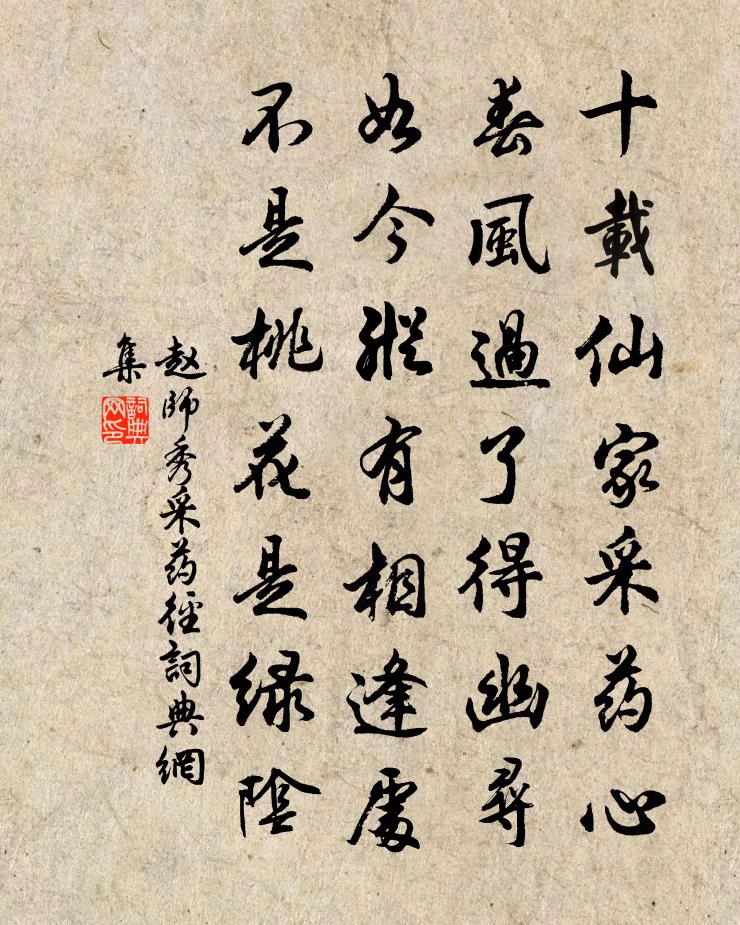 十載仙家采药心
春風過了得幽尋
如今縱有相逢處
不是桃花是綠陰
赵師秀采药徑詞典網
集
詞典網印